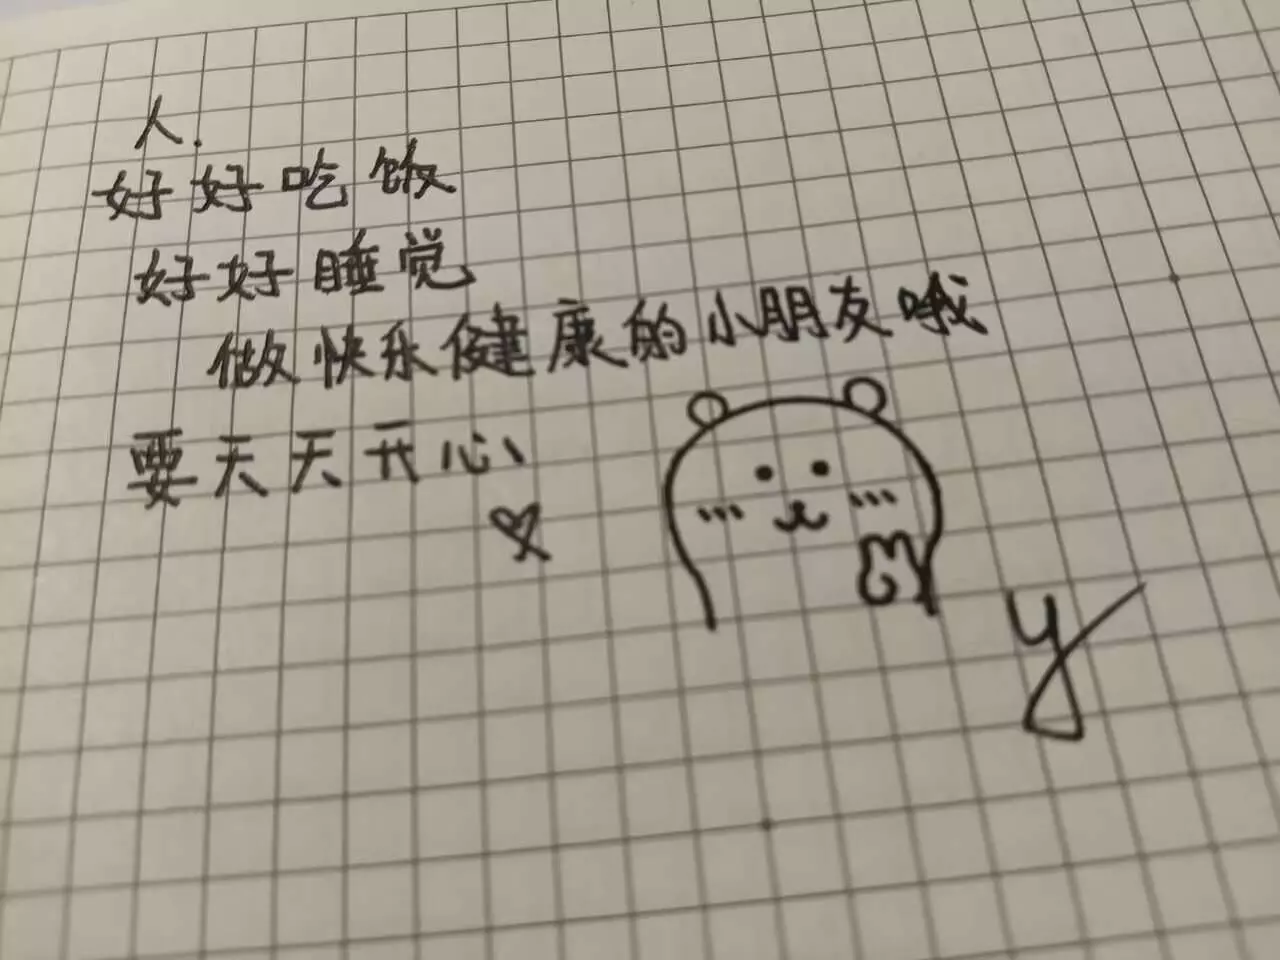 人.
好好吃饭
好好睡觉
做快乐健康的小朋友哦
要天天开心
y